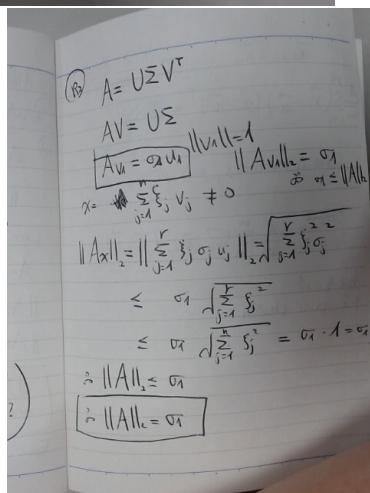 R3
A = UΣV^T
AV = UΣ
Av₁ = σ₁u₁ ||v₁||=1
||Av₁||₂ = σ₁
∴ σ₁ ≤ ||A||₂
x = Σ_{j=1}^{n} ξ_j v_j ≠ 0
||Ax||₂ = ||Σ_{j=1}^{r} ξ_j σ_j u_j||₂ = √(Σ_{j=1}^{r} ξ_j² σ_j²)
≤ σ₁ √(Σ_{j=1}^{r} ξ_j²)
≤ σ₁ √(Σ_{j=1}^{n} ξ_j²) = σ₁ · 1 = σ₁
∴ ||A||₂ ≤ σ₁
∴ ||A||₂ = σ₁
?